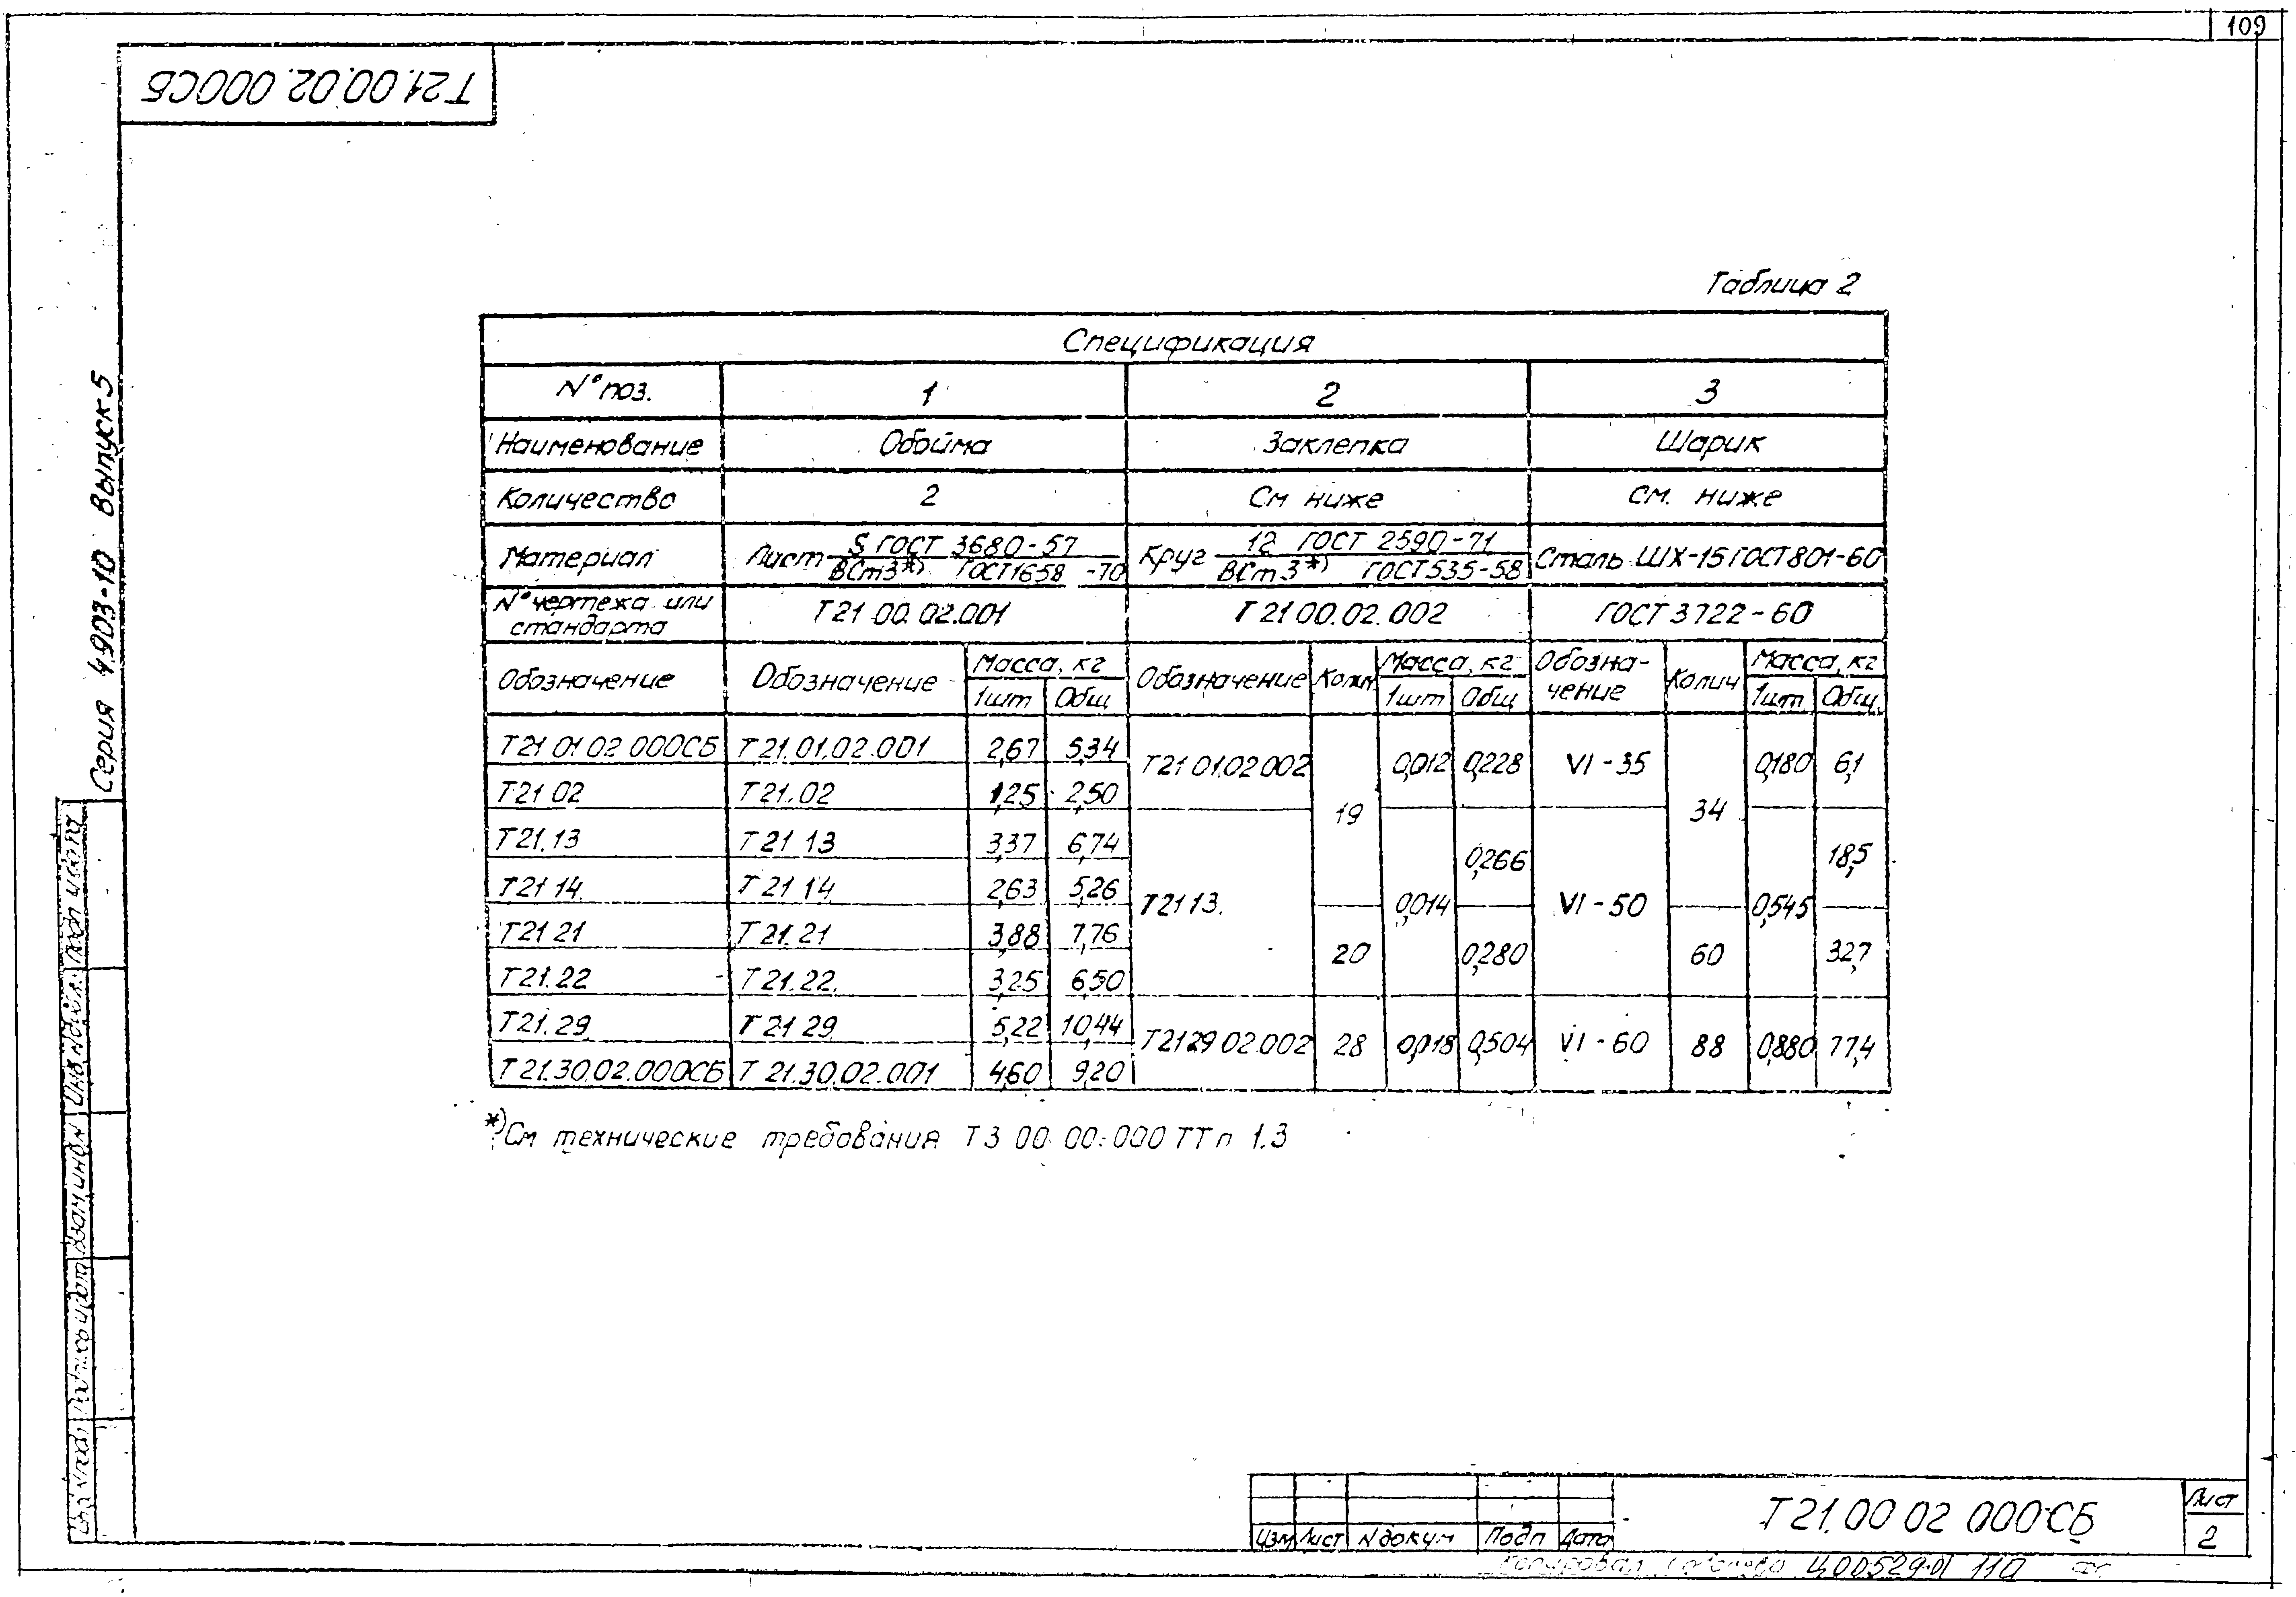 109
Т21.00.02.000СБ
Серия 4.903-10 Выпуск 5
Таблица 2
Спецификация
N° поз. 1 2 3
Наименование Обойма Заклепка Шарик
Количество 2 См ниже см. ниже
Материал Лист S ГОСТ 3680-57 / ВСт3*) ГОСТ1658-70 Круг 12 ГОСТ 2590-71 / ВСт3*) ГОСТ535-58 Сталь ШХ-15 ГОСТ801-60
N° чертежа или стандарта Т21.00.02.001 Т2100.02.002 ГОСТ 3722-60
Обозначение Обозначение Масса, кг Обозначение Колич Масса, кг Обозна-чение Колич Масса, кг
1шт Общ 1шт Общ 1шт Общ.
Т21.01.02.000СБ Т21.01.02.001 2,67 5,34 Т21.01.02.002 19 0,012 0,228 VI-35 34 0,180 6,1
Т21 02 Т21.02 1,25 2,50
Т21.13 Т21 13 3,37 6,74 Т21 13. 0,014 0,266 VI-50 0,545 18,5
Т21 14 Т21 14 2,63 5,26
Т21 21 Т21.21 3,88 7,76 20 0,280 60 32,7
Т21.22 Т21.22. 3,25 6,50
Т21.29 Т21 29 5,22 10,44 Т2129 02.002 28 0,018 0,504 VI-60 88 0,880 77,4
Т21.30.02.000СБ Т 21.30.02.001 4,60 9,20
*) См технические требования Т3 00 00.000 ТТ п 1.3
Изм Лист N докум Подп Дата
Т21.00 02 000СБ
Лист
2
Копировал Ц00529-01 110
Подп и дата
Взам инв N